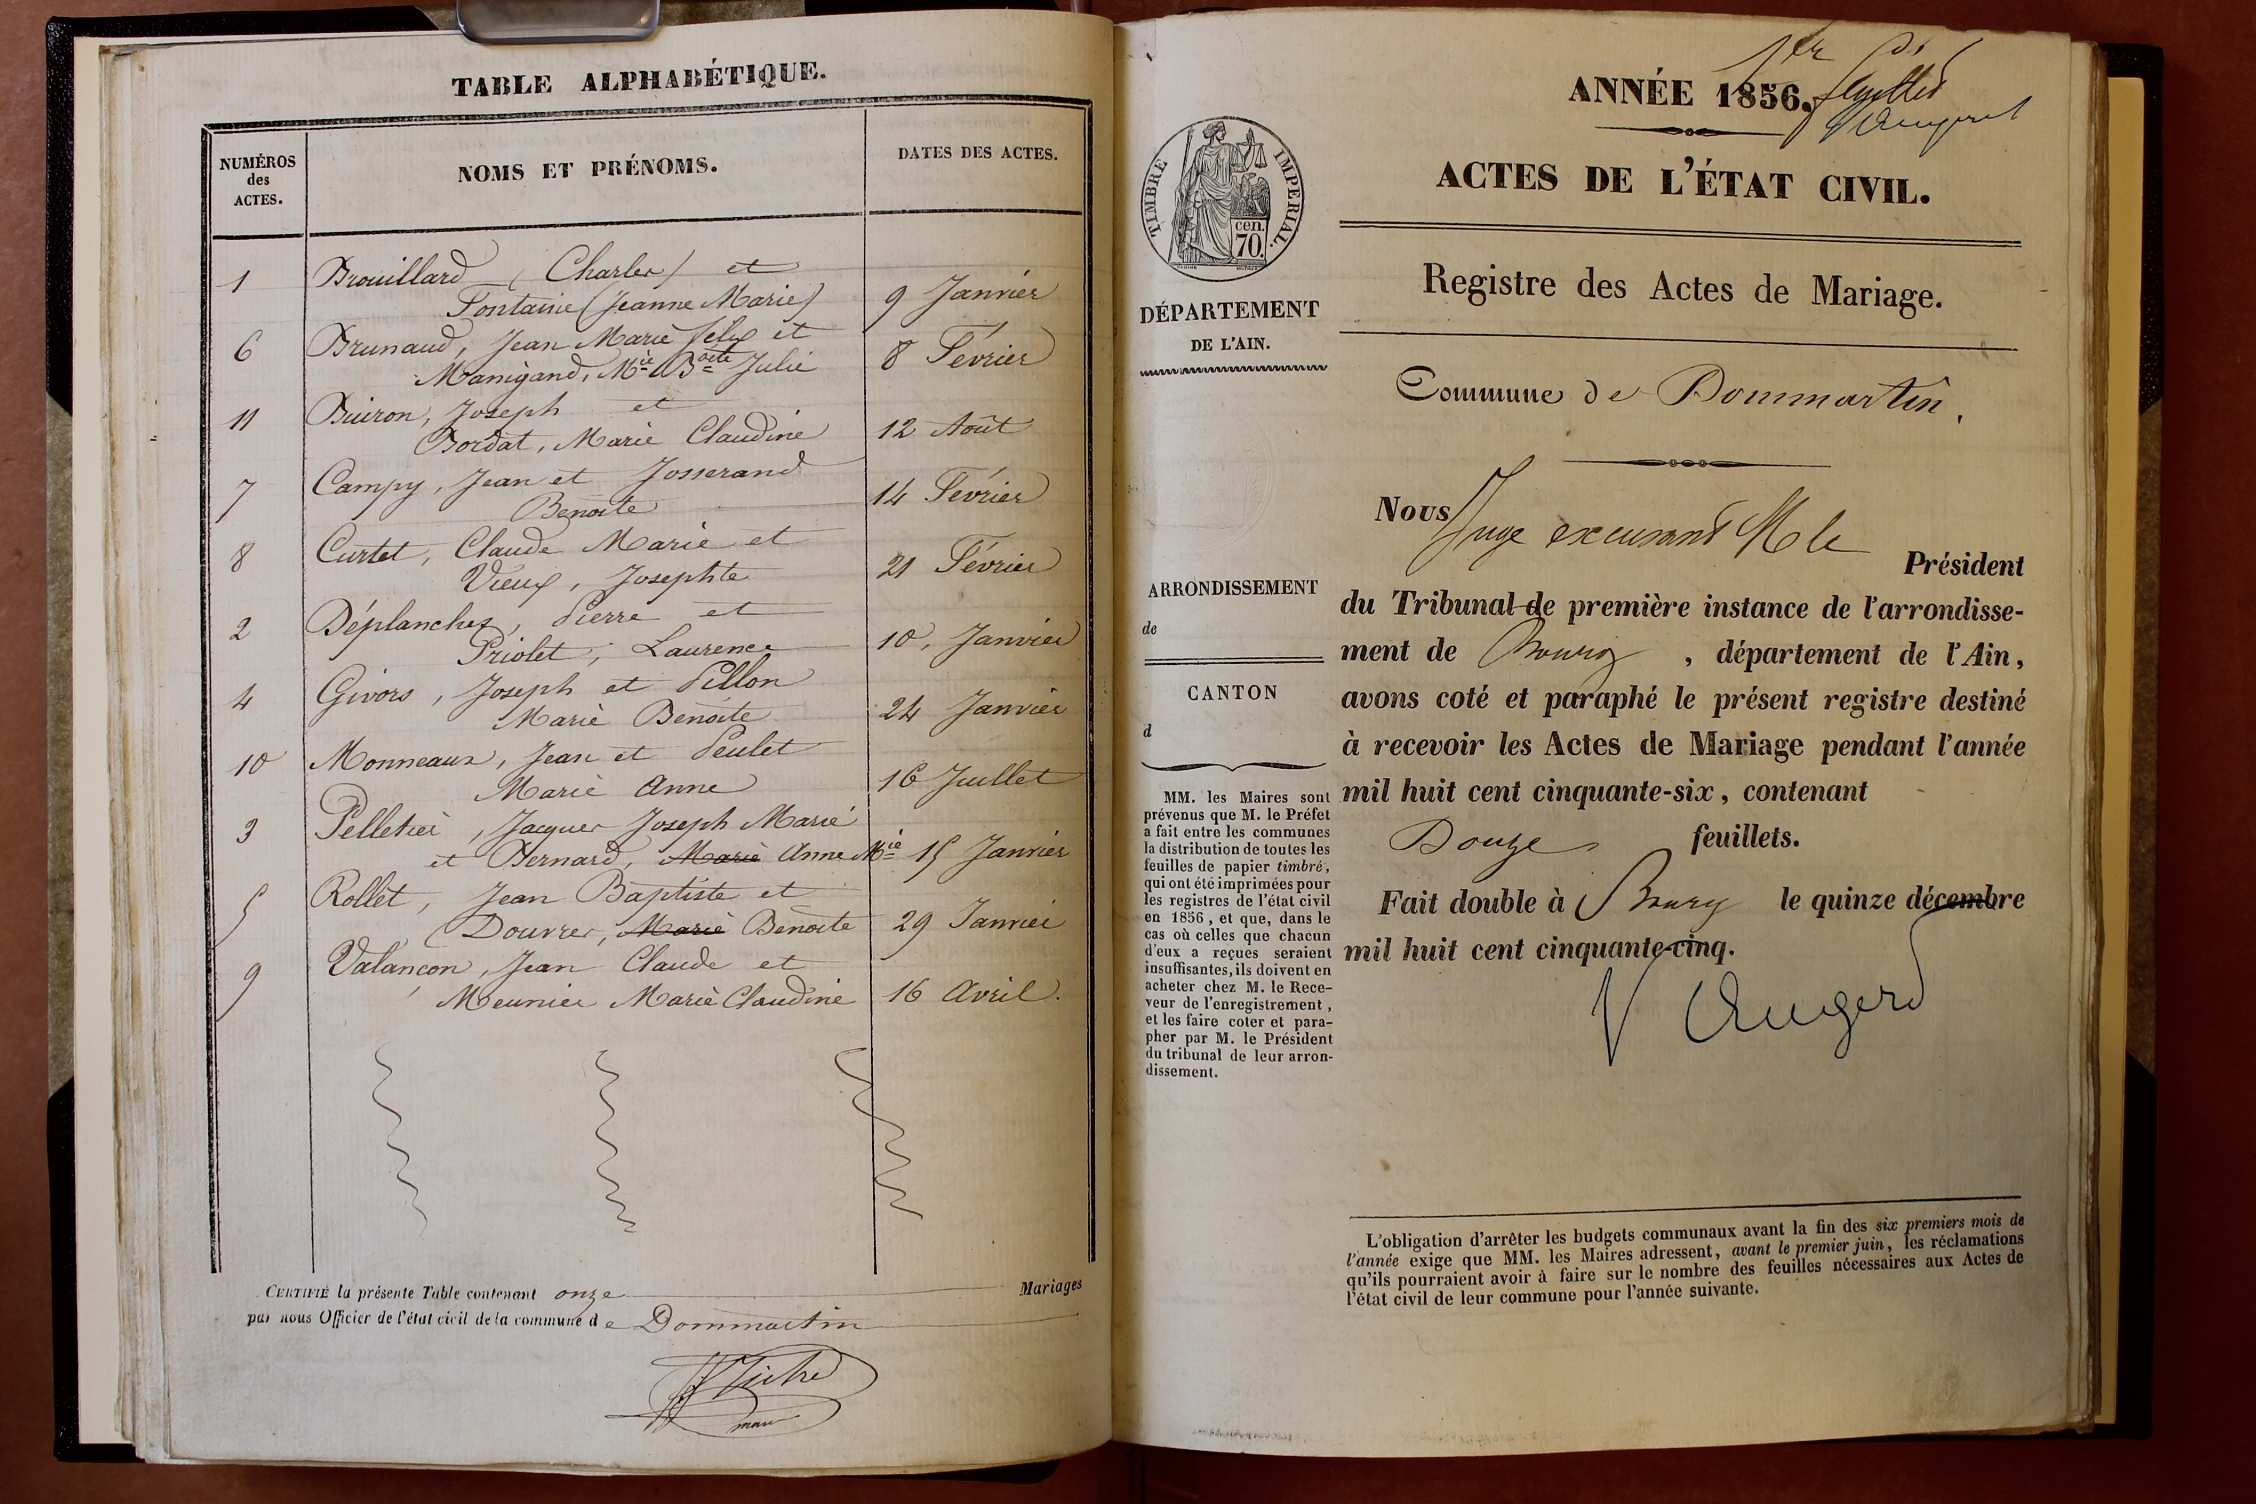 TABLE ALPHABÉTIQUE.
NUMÉROS
des
ACTES.
NOMS ET PRÉNOMS.
DATES DES ACTES.
1 Brouillard (Charles) et
Fontaine (Jeanne Marie) 9 Janvier
6 Brunaud, Jean Marie Felix et
Manigand, Mie Boite Julie 8 Février
11 Buiron, Joseph et
Bordat, Marie Claudine 12 Août
7 Campy, Jean et Josserand
Benoite 14 Février
8 Curtet, Claude Marie et
Vieux, Josephte 21 Février
2 Déplanches, Pierre et
Priolet, Laurence 10, Janvier
4 Givors, Joseph et Pillon
Marie Benoite 24 Janvier
10 Monneaux, Jean et Peulet
Marie Anne 16 Juillet
3 Pelletier, Jacques Joseph Marie
et Bernard, Marie Anne Mie 15 Janvier
5 Rollet, Jean Baptiste et
Douvres, Marie Benoite 29 Janvier
9 Valançon, Jean Claude et
Meunier Marie Claudine 16 Avril.
CERTIFIÉ la présente Table contenant onze Mariages
par nous Officier de l'état civil de la commune de Dommartin
1er feuillet
ANNÉE 1856.
ACTES DE L'ÉTAT CIVIL.
Registre des Actes de Mariage.
Commune de Dommartin.
TIMBRE IMPERIAL.
cen.
70.
DÉPARTEMENT
DE L'AIN.
ARRONDISSEMENT
de
CANTON
d
MM. les Maires sont
prévenus que M. le Préfet
a fait entre les communes
la distribution de toutes les
feuilles de papier timbré,
qui ont été imprimées pour
les registres de l'état civil
en 1856, et que, dans le
cas où celles que chacun
d'eux a reçues seraient
insuffisantes, ils doivent en
acheter chez M. le Rece-
veur de l'enregistrement,
et les faire coter et para-
pher par M. le Président
du tribunal de leur arron-
dissement.
Nous Juge excusant M le
Président
du Tribunal de première instance de l'arrondisse-
ment de Bourg, département de l'Ain,
avons coté et paraphé le présent registre destiné
à recevoir les Actes de Mariage pendant l'année
mil huit cent cinquante-six, contenant
Douze feuillets.
Fait double à Bourg le quinze décembre
mil huit cent cinquante-cinq.
L'obligation d'arrêter les budgets communaux avant la fin des six premiers mois de
l'année exige que MM. les Maires adressent, avant le premier juin, les réclamations
qu'ils pourraient avoir à faire sur le nombre des feuilles nécessaires aux Actes de
l'état civil de leur commune pour l'année suivante.